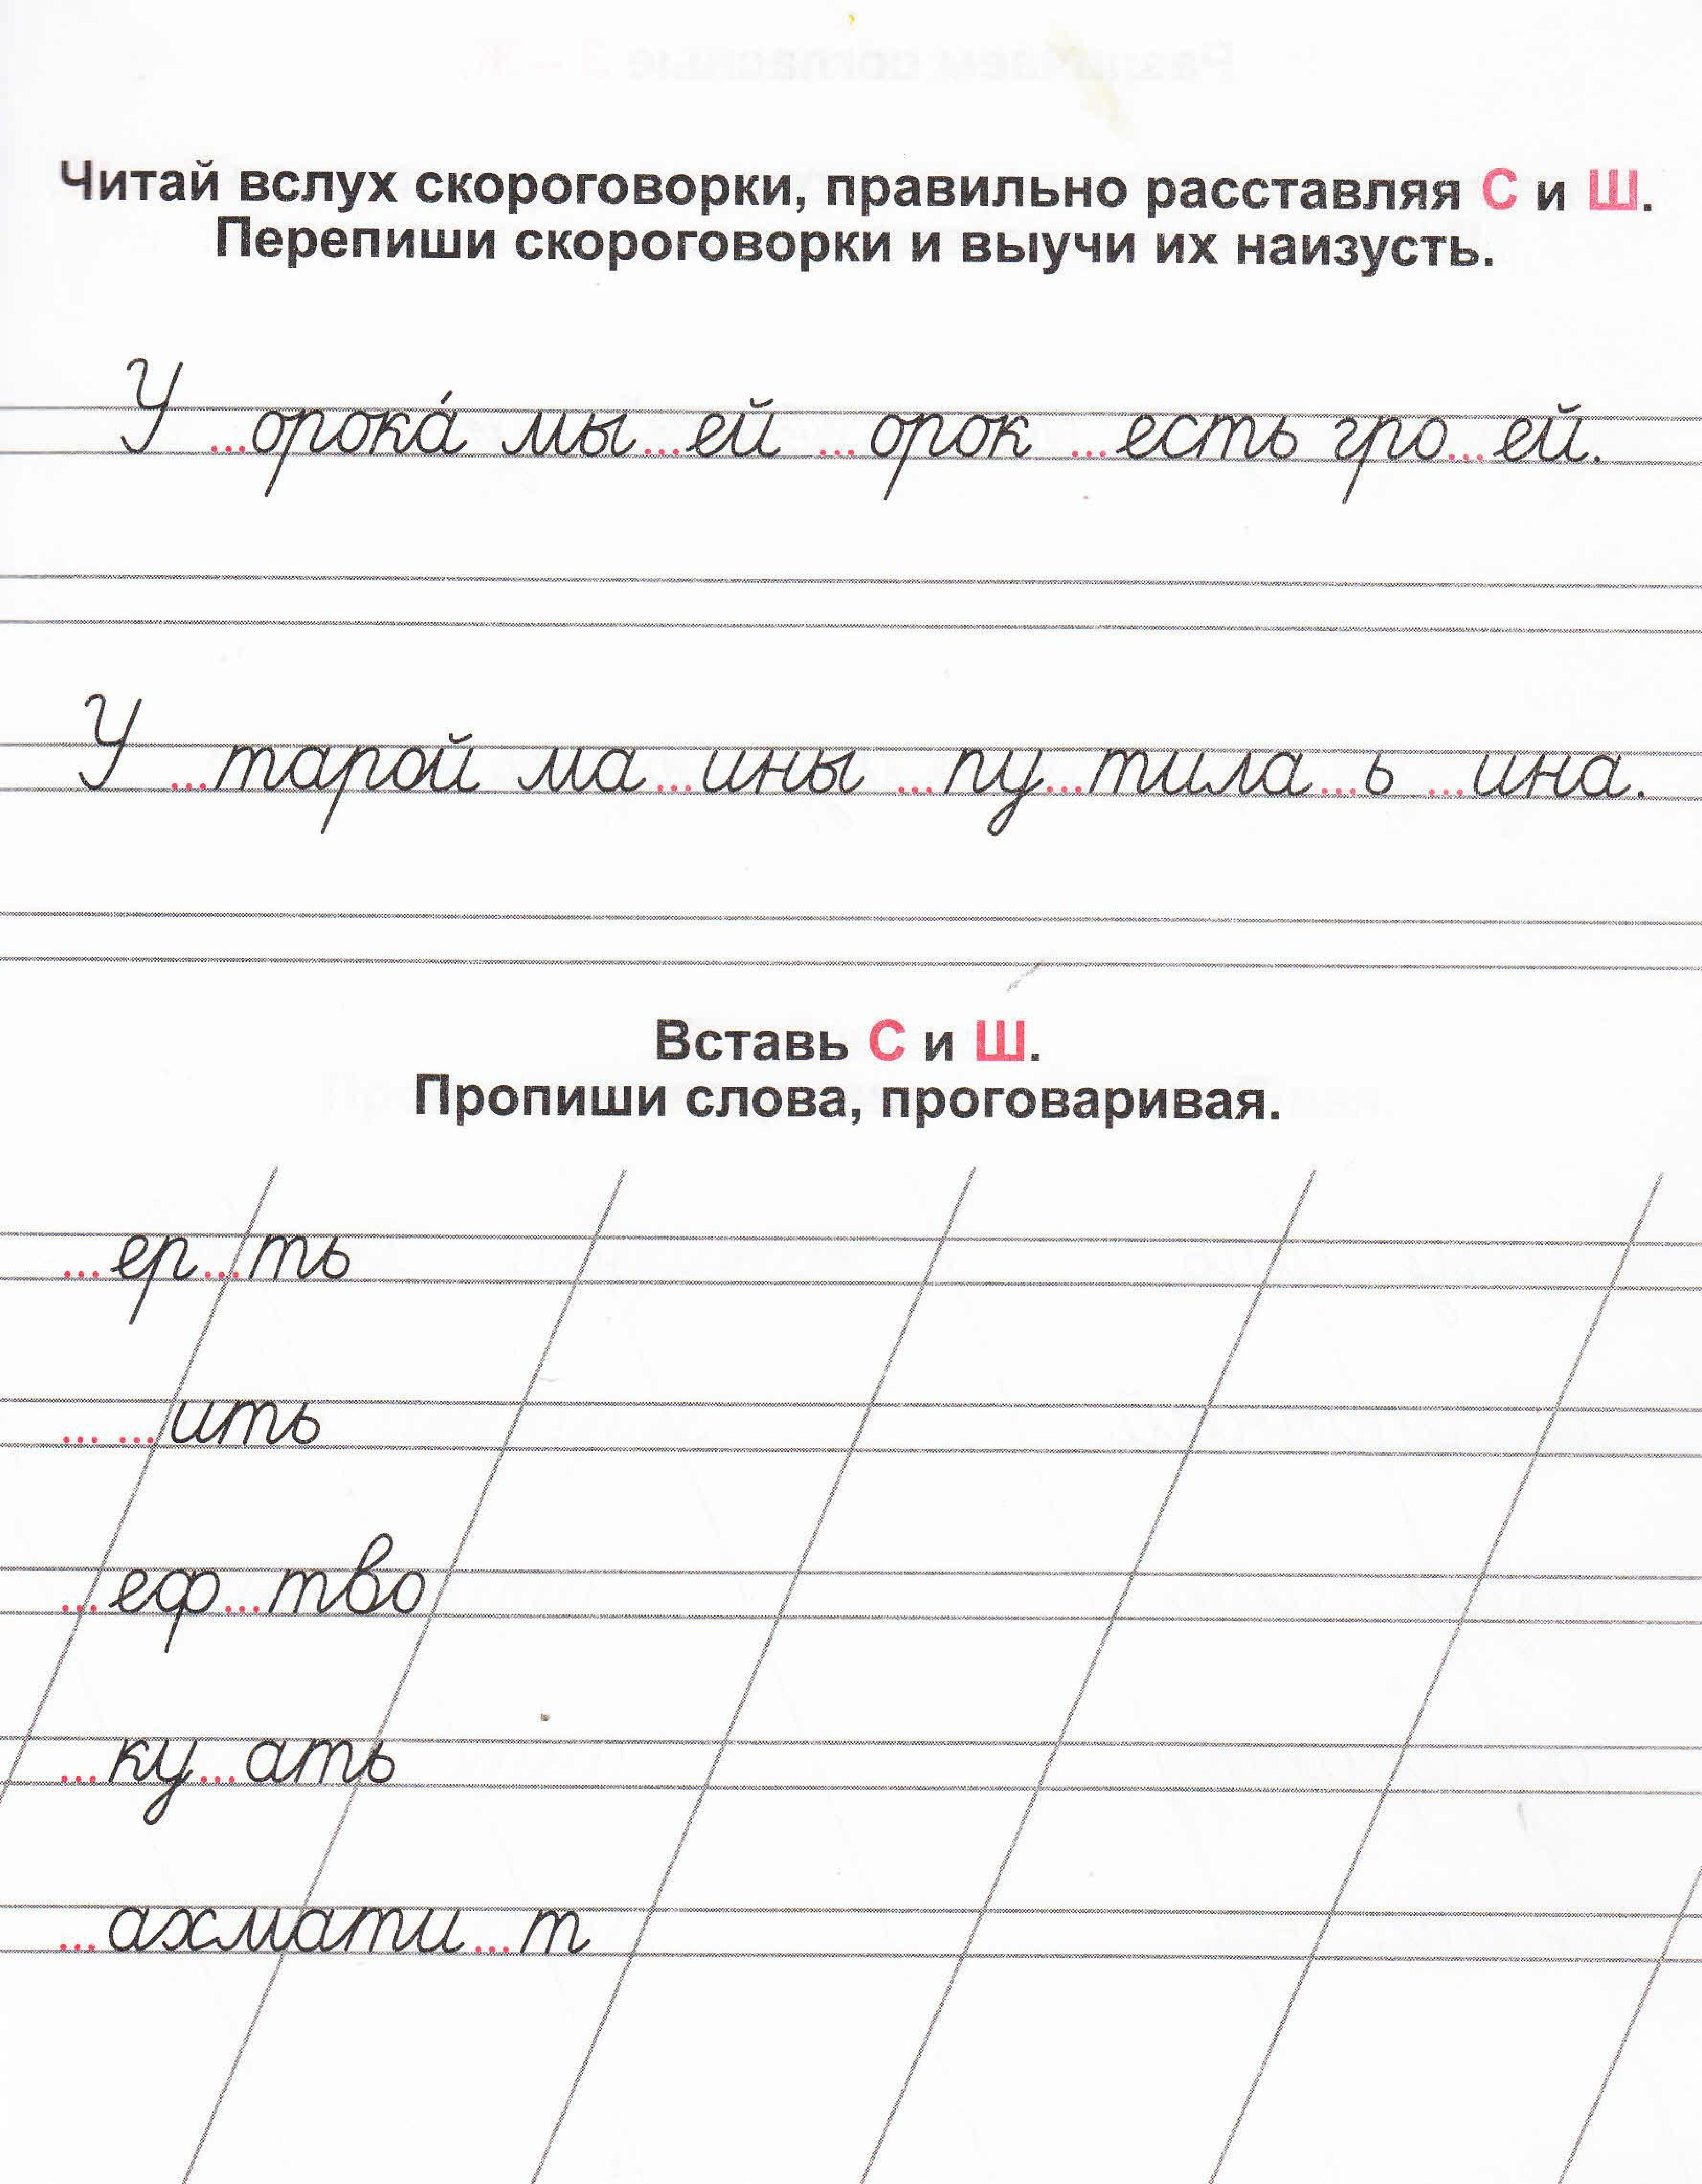 Читай вслух скороговорки, правильно расставляя С и Ш.
Перепиши скороговорки и выучи их наизусть.
У ...орока́ мы...ей ... орок ...есть гро...ей.
У ...тарой ма...ины ...пу...тила...ь ...ина.
Вставь С и Ш.
Пропиши слова, проговаривая.
...ер...ть
... ...ить
...еф...тво
...ку...ать
...ахмати...т